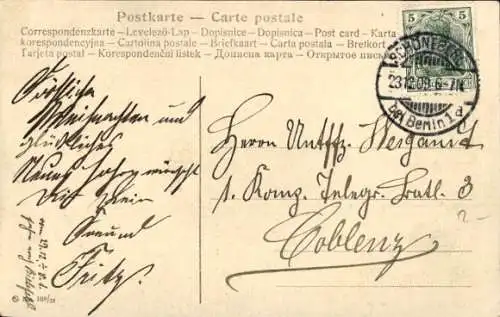 Postkarte — Carte postale
Correspondenzkarte – Levelező-Lap – Dopisnice – Dopisnica – Post card – Karta
korespondencyjna – Cartolina postale – Briefkaart – Carta postala – Brefkort
Tarjeta postal – Korespondenční listek – Дописна карта – Открытое письмо
5 5
SCHÖNEBERG
23.12.08. 6-7N.
bei Berlin 1 a
Fröhliche
Weihnachten und
glückliches
Neues Jahr wünscht
Dir Dein
Freund
Fritz.
Herrn Untffz. Weigandt
1. Komp. Telegr. Batl. 3
Coblenz
2-